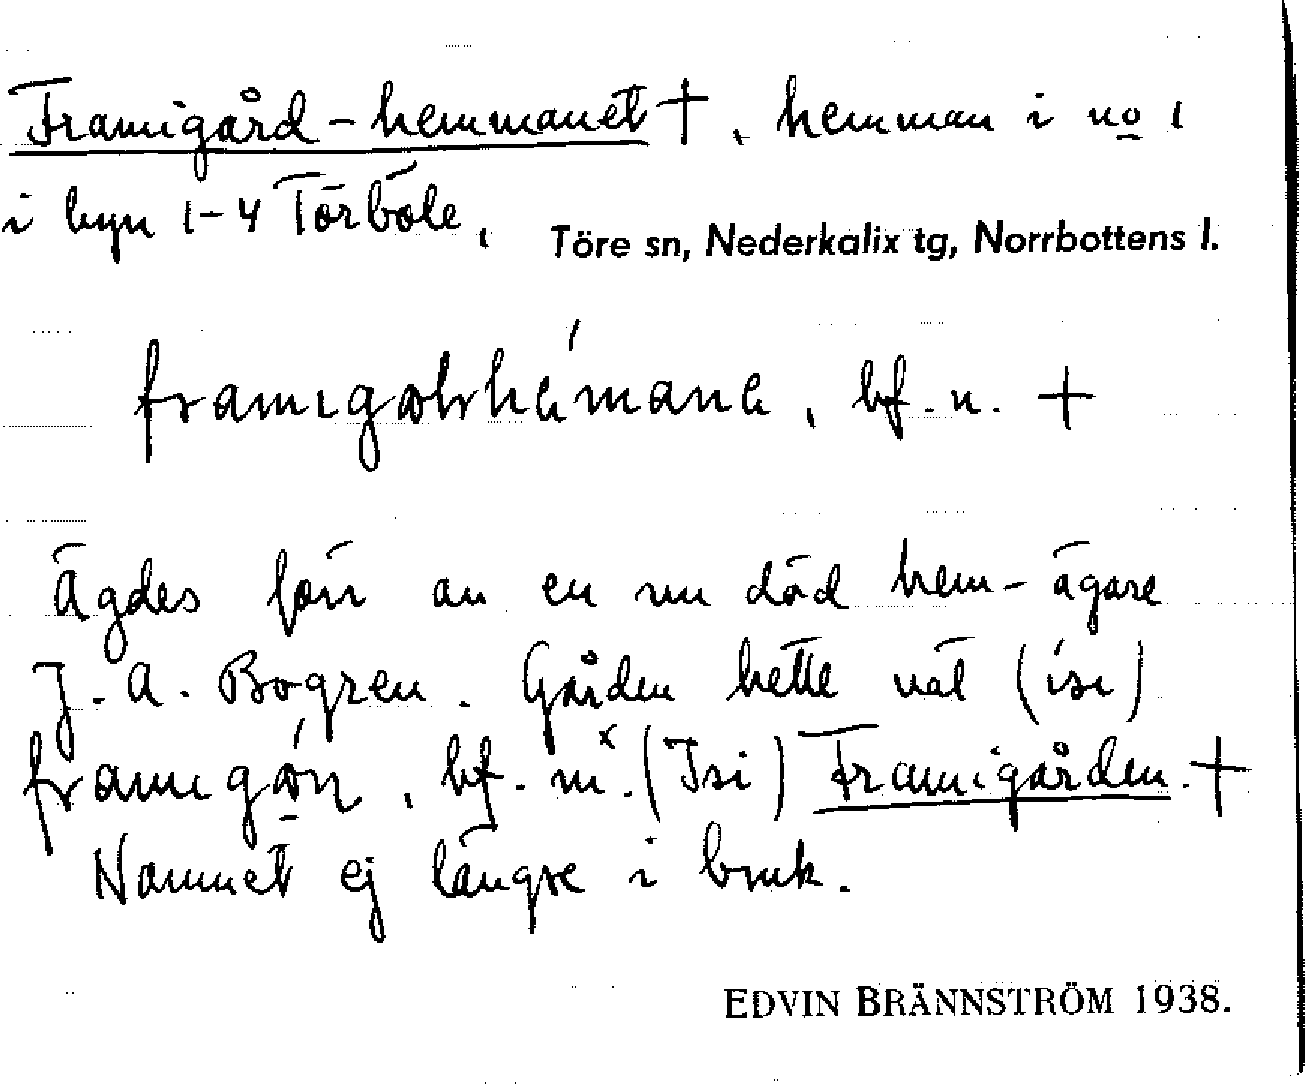 Framigård-hemmanet †, hemman i no 1
i byn 1-4 Törböle,
Töre sn, Nederkalix tg, Norrbottens l.
bf. n. +
Ägdes förr av en nu död hem-ägare
J. A. Bogren. Gården hette
bf. m. Framigården. +
Namnet ej längre i bruk.
EDVIN BRÄNNSTRÖM 1938.